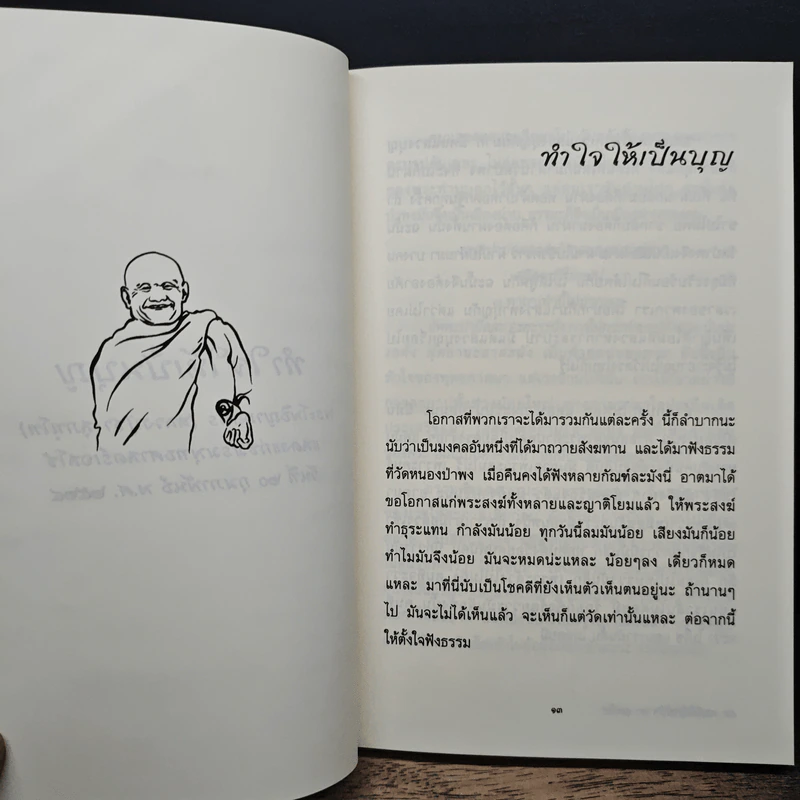 ทำใจให้เป็นบุญ
โอกาสที่พวกเราจะได้มารวมกันแต่ละครั้ง นี้ก็ลำบากนะ
นับว่าเป็นมงคลอันหนึ่งที่ได้มาถวายสังฆทาน และได้มาฟังธรรม
ที่วัดหนองป่าพง เมื่อคืนคงได้ฟังหลายกัณฑ์ละมังนี่ อาตมาได้
ขอโอกาสแก่พระสงฆ์ทั้งหลายและญาติโยมแล้ว ให้พระสงฆ์
ทำธุระแทน กำลังมันน้อย ทุกวันนี้ลมมันน้อย เสียงมันก็น้อย
ทำไมมันจึงน้อย มันจะหมดน่ะแหละ น้อยๆลง เดี๋ยวก็หมด
แหละ มาที่นี่นับเป็นโชคดีที่ยังเห็นตัวเห็นตนอยู่นะ ถ้านานๆ
ไป มันจะไม่ได้เห็นแล้ว จะเห็นก็แต่วัดเท่านั้นแหละ ต่อจากนี้
ให้ตั้งใจฟังธรรม
๑๓